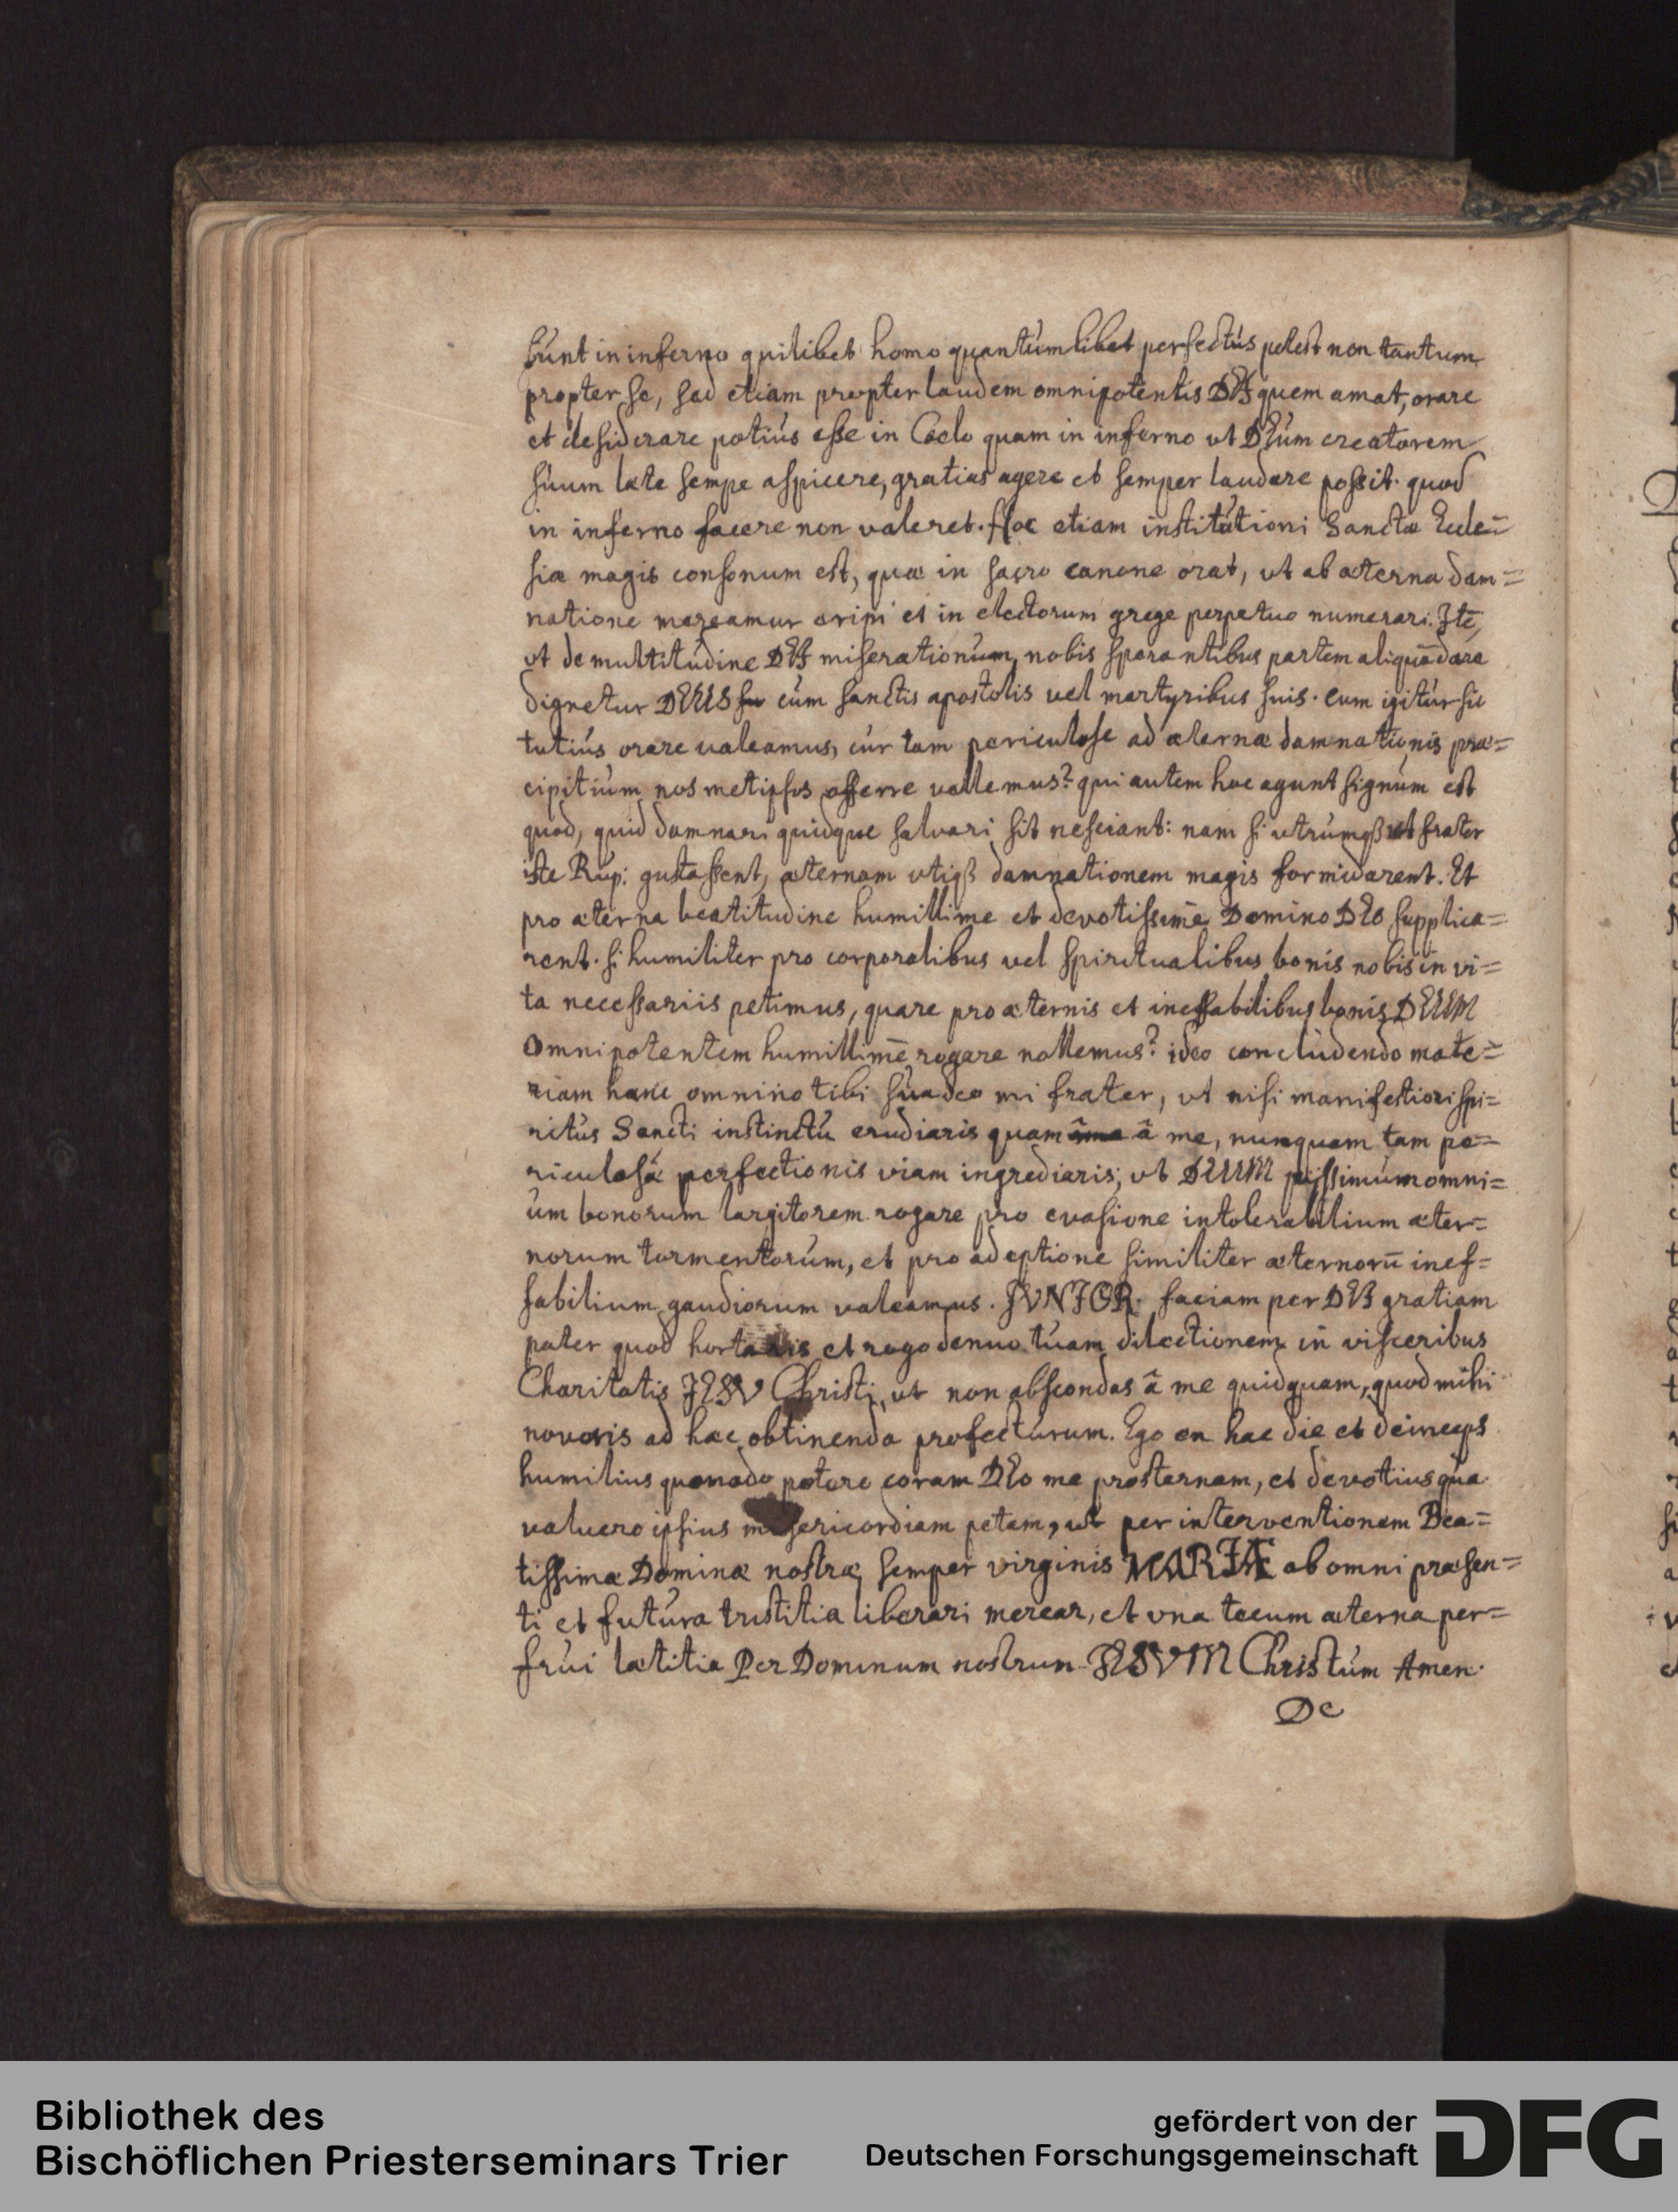 bunt in inferno quilibet homo quantumlibet perfectus potest non tantum
propter se, sed etiam propter laudem omnipotentis DEI quem amat, orare
et desiderare potius esse in Coelo quam in inferno ut DEum creatorem
suum læte sempe aspicere, gratias agere et semper laudare possit. quod
in inferno facere non valeret. Hoc etiam institutioni Sanctæ Eccle=
siæ magis consonum est, quæ in sacro canone orat, ut ab æterna dam=
natione mereamur eripi et in electorum grege perpetuo numerari. Itē,
ut de multitudine DEI miserationum, nobis sperantibus partem aliquā dare
dignetur DEUS cum sanctis apostolis vel martyribus suis. cum igitur sic
tutius orare valeamus, cur tam periculose ad æternæ damnationis præ=
cipitium nosmetipsos offerre vellemus? qui autem hoc agunt signum est
quod, quid damnari quidque salvari sit nesciant: nam si utrumqß ut frater
iste Rup: gustassent, æternam utiqß damnationem magis formidarent. Et
pro æterna beatitudine humillime et devotissime Domino DEO supplica=
rent. si humiliter pro corporalibus vel spiritualibus bonis nobis in vi=
ta necessariis petimus, quare pro æternis et ineffabilibus bonis DEUM
Omnipotentem humillimē rogare nollemus? ideo concludendo mate=
riam hanc omnino tibi suadeo mi frater, ut nisi manifestiori spi=
ritus Sancti instinctu erudiaris quam â me, nunquam tam pe=
riculosâ perfectionis viam ingrediaris, ut DEUM piissimum omni=
um bonorum largitorem rogare pro evasione intolerabilium æter=
norum tormentorum, et pro adeptione similiter æternorū inef=
fabilium gaudiorum valeamus. JUNIOR. faciam per DEI gratiam
pater quod hortaris et rogo denuo tuam dilectionem in visceribus
Charitatis JESV Christi, ut non abscondas â me quidquam, quod mihi
noveris ad hæc obtinenda profecturum. Ego en hac die et deinceps
humilius quomodo potero coram DEO me prosternam, et devotius quā
valuero ipsius misericordiam petam, ut per interventionem Bea=
tissimæ Dominæ nostræ semper virginis MARIÆ ab omni præsen=
ti et futura tristitia liberari merear, et una tecum æterna per=
frui lætitia Per Dominum nostrum JESVM Christum Amen.
De
Bibliothek des
Bischöflichen Priesterseminars Trier
gefördert von der
Deutschen Forschungsgemeinschaft
DFG